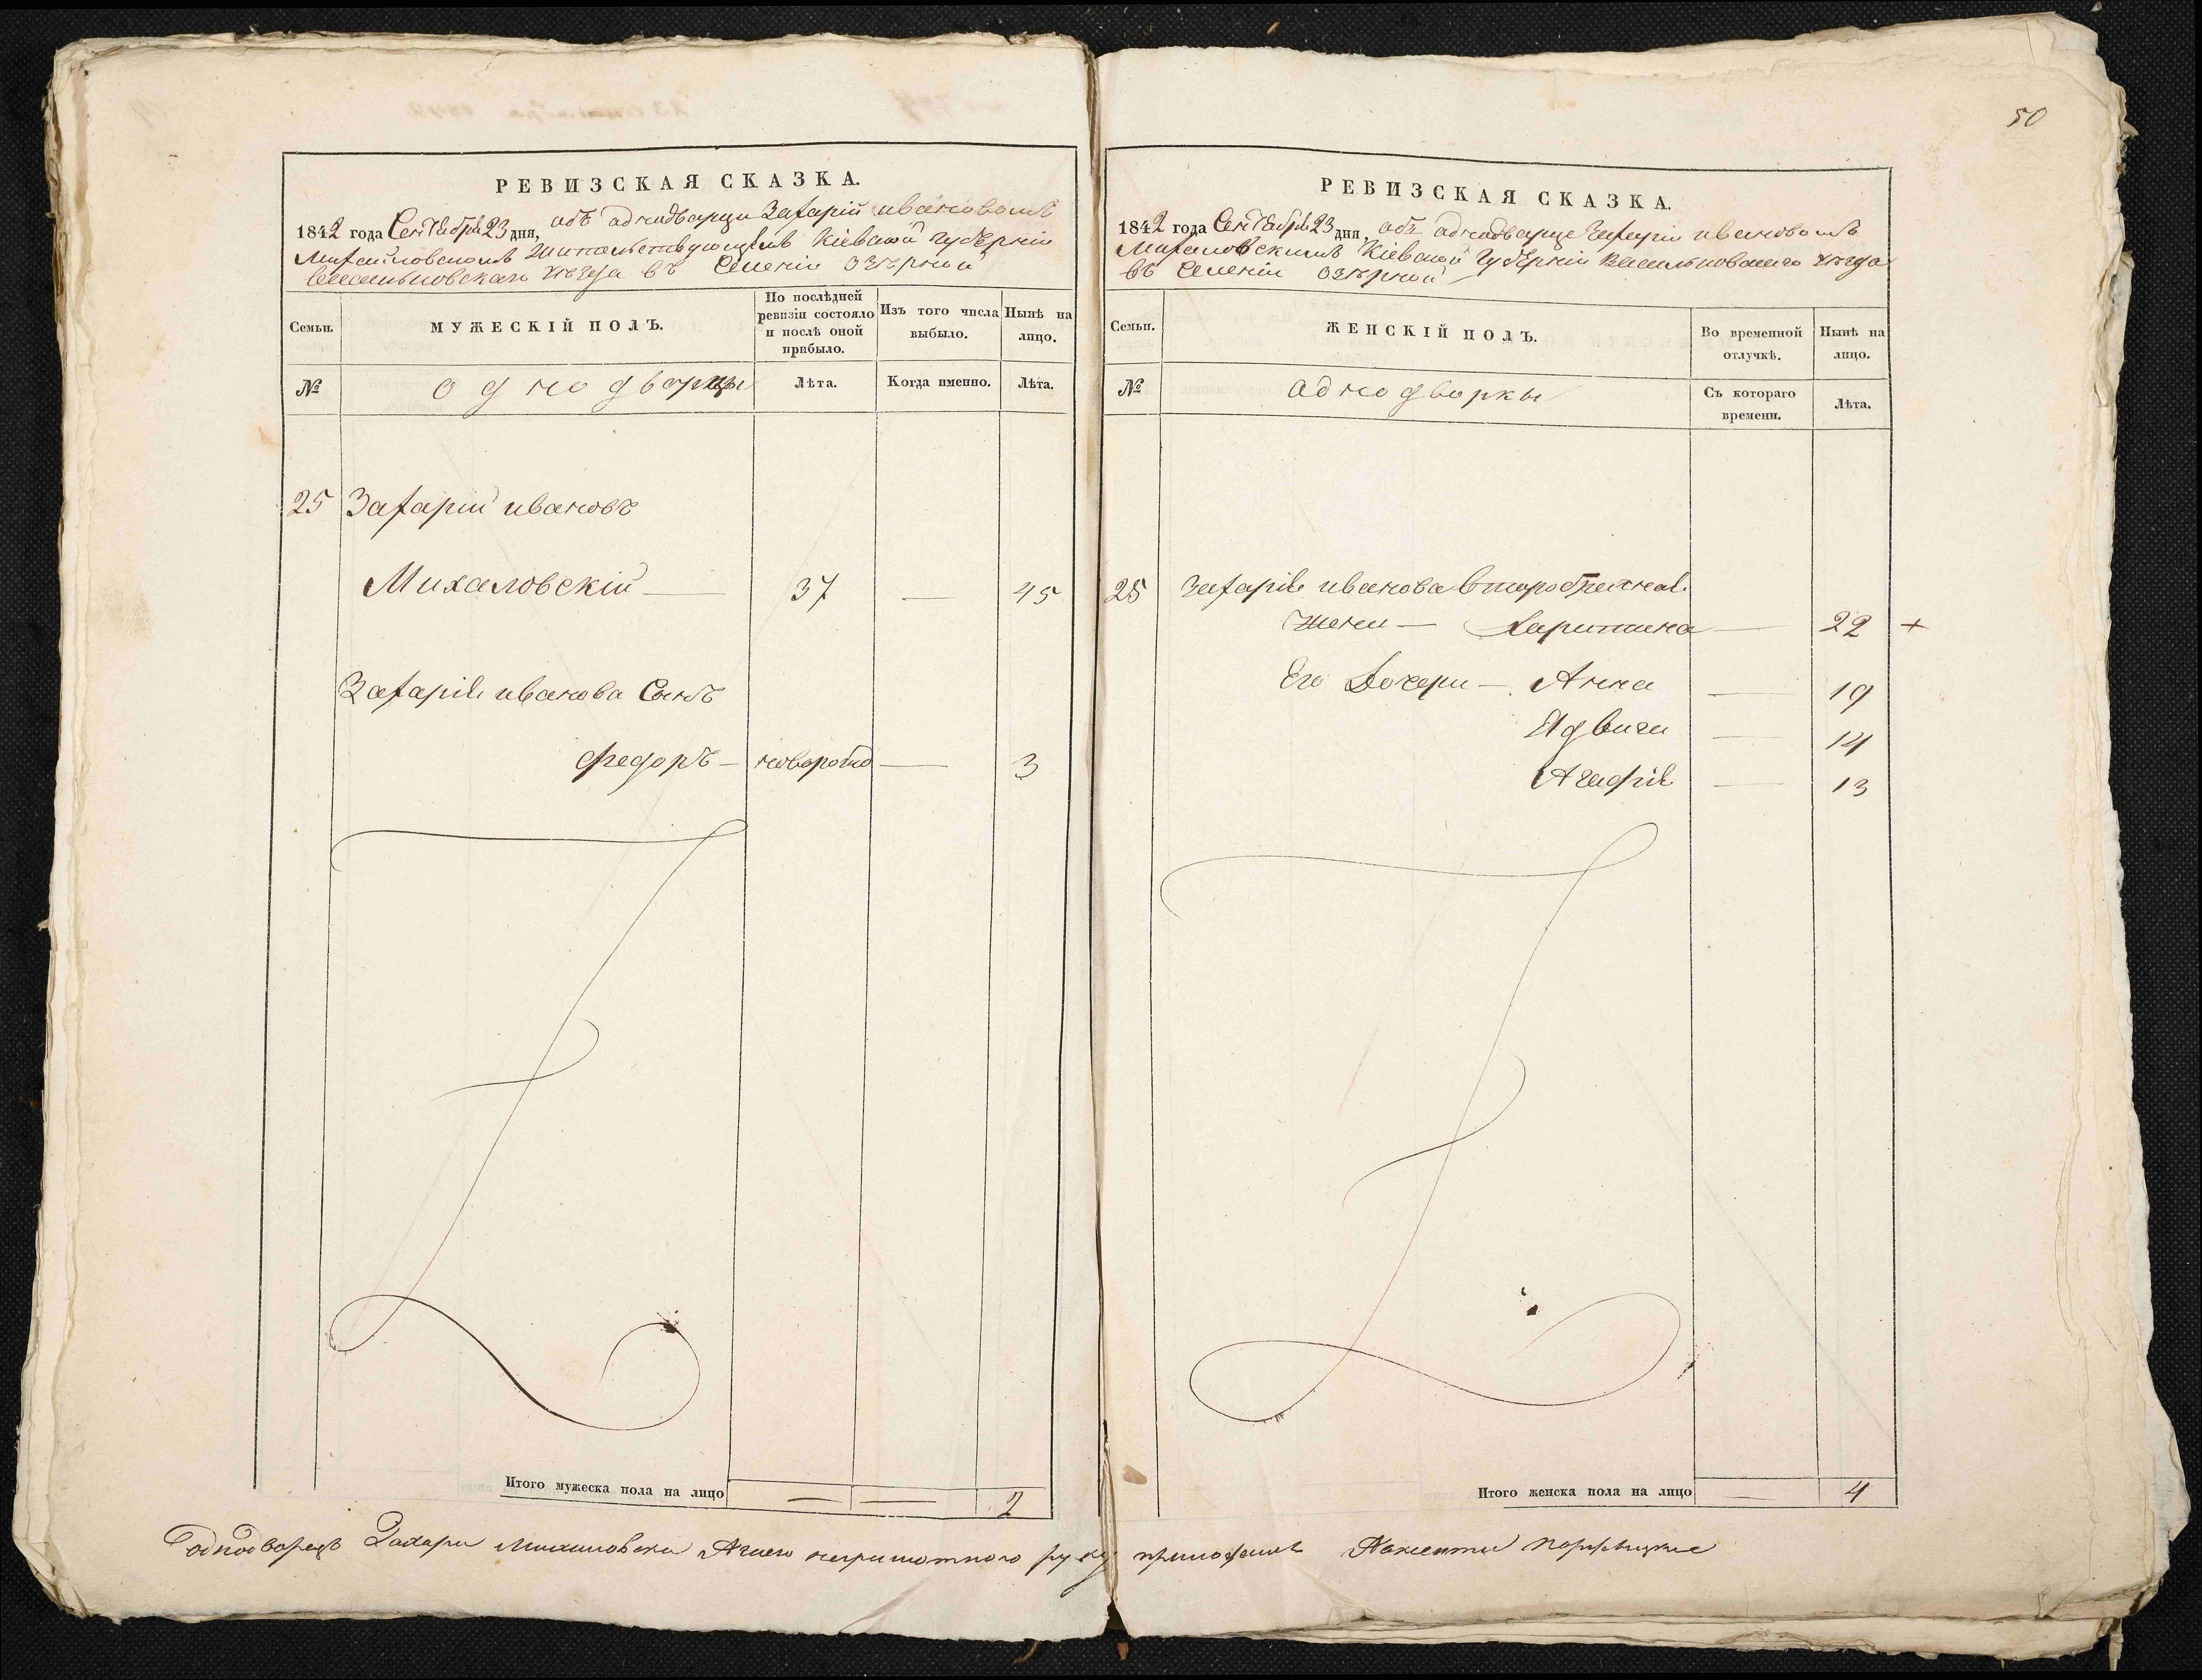 50
РЕВИЗСКАЯ СКАЗКА.
1842 года Сентября 23 дня, объ аднодварци Захарий ивановомъ
Михайловскомъ Жительствующемъ Кіевской губерніи
Васильковскаго уезда въ Селеніи Озерной
Семьи.
МУЖЕСКІЙ ПОЛЪ.
По послѣдней ревизіи состояло и послѣ оной прибыло.
Изъ того числа выбыло.
Нынѣ на лицо.
№
однодворцы
Лѣта.
Когда именно.
Лѣта.
25 Захарий ивановъ
Михаловскій — 37 — 45
Захарія иванова Сынъ
Федоръ — новорожд — 3
Итого мужеска пола на лицо — — 2
РЕВИЗСКАЯ СКАЗКА.
1842 года Сентября 23 дня, объ аднодварце Захарии ивановомъ
Михаловскимъ Кіевской Губерніи Васильковскаго уезда
въ Селеніи Озерной
Семьи.
ЖЕНСКІЙ ПОЛЪ.
Во временной отлучкѣ.
Нынѣ на лицо.
№
аднодворки
Съ котораго времени.
Лѣта.
25 Захарія иванова второбрачная
жена — Харитина — 22 +
Его Дочери — Анна — 19
Ядвига — 14
Агафія — 13
Итого женска пола на лицо — 4
однодворецъ Захари Михаловски А за его неграмотного руку приложилъ